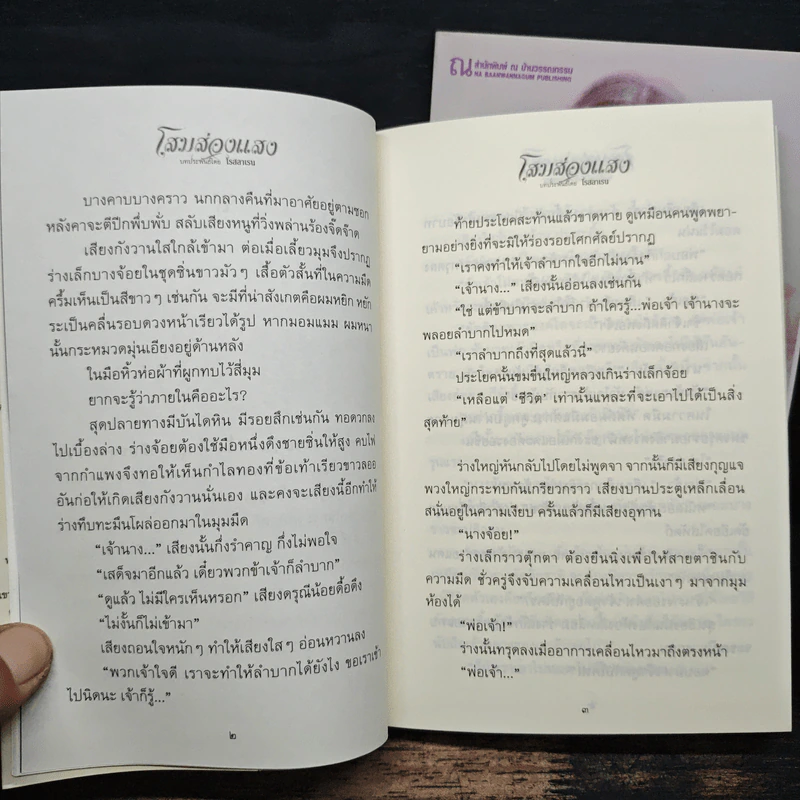 ณ สำนักพิมพ์ ณ บ้านวรรณกรรม
NA BAANWANNAGUM PUBLISHING
โสมส่องแสง
บทประพันธ์โดย โรสลาเรน
บางคาบบางคราว นกกลางคืนที่มาอาศัยอยู่ตามซอก
หลังคาจะตีปีกพึ่บพั่บ สลับเสียงหนูที่วิ่งพล่านร้องจี๊ดจ๊าด
เสียงกังวานใสใกล้เข้ามา ต่อเมื่อเลี้ยวมุมจึงปรากฏ
ร่างเล็กบางจ้อยในชุดซิ่นขาวมัวๆ เสื้อตัวสั้นที่ในความมืด
ครึ้มเห็นเป็นสีขาวๆ เช่นกัน จะมีที่น่าสังเกตคือผมหยิก หยัก
ระเป็นคลื่นรอบดวงหน้าเรียวได้รูป หากมอมแมม ผมหนา
นั้นกระหมวดมุ่นเอียงอยู่ด้านหลัง
ในมือหิ้วห่อผ้าที่ผูกทบไว้สี่มุม
ยากจะรู้ว่าภายในคืออะไร?
สุดปลายทางมีบันไดหิน มีรอยสึกเช่นกัน ทอดวกลง
ไปเบื้องล่าง ร่างจ้อยต้องใช้มือหนึ่งดึงชายซิ่นให้สูง คบไฟ
จากกำแพงจึงทอให้เห็นกำไลทองที่ข้อเท้าเรียวขาวลออ
อันก่อให้เกิดเสียงกังวานนั่นเอง และคงจะเสียงนี้อีกทำให้
ร่างทึบทะมึนโผล่ออกมาในมุมมืด
“เจ้านาง...” เสียงนั้นกึ่งรำคาญ กึ่งไม่พอใจ
“เสด็จมาอีกแล้ว เดี๋ยวพวกข้าเจ้าก็ลำบาก”
“ดูแล้ว ไม่มีใครเห็นหรอก” เสียงดรุณีน้อยดื้อดึง
“ไม่งั้นก็ไม่เข้ามา”
เสียงถอนใจหนักๆ ทำให้เสียงใสๆ อ่อนหวานลง
“พวกเจ้าใจดี เราจะทำให้ลำบากได้ยังไง ขอเราเข้า
ไปนิดนะ เจ้าก็รู้...”
๒
โสมส่องแสง
บทประพันธ์โดย โรสลาเรน
ท้ายประโยคสะท้านแล้วขาดหาย ดูเหมือนคนพูดพยา-
ยามอย่างยิ่งที่จะมิให้ร่องรอยโศกศัลย์ปรากฏ
“เราคงทำให้เจ้าลำบากใจอีกไม่นาน”
“เจ้านาง...” เสียงนั้นอ่อนลงเช่นกัน
“ใช่ แต่ข้าบาทจะลำบาก ถ้าใครรู้...พ่อเจ้า เจ้านางจะ
พลอยลำบากไปหมด”
“เราลำบากถึงที่สุดแล้วนี่”
ประโยคนั้นขมขื่นใหญ่หลวงเกินร่างเล็กจ้อย
“เหลือแต่ ‘ชีวิต’ เท่านั้นแหละที่จะเอาไปได้เป็นสิ่ง
สุดท้าย”
ร่างใหญ่หันกลับไปโดยไม่พูดจา จากนั้นก็มีเสียงกุญแจ
พวงใหญ่กระทบกันเกรียวกราว เสียงบานประตูเหล็กเลื่อน
สนั่นอยู่ในความเงียบ ครั้นแล้วก็มีเสียงอุทาน
“นางจ้อย!”
ร่างเล็กราวตุ๊กตา ต้องยืนนิ่งเพื่อให้สายตาชินกับ
ความมืด ชั่วครู่จึงจับความเคลื่อนไหวเป็นเงาๆ มาจากมุม
ห้องได้
“พ่อเจ้า!”
ร่างนั้นทรุดลงเมื่ออาการเคลื่อนไหวมาถึงตรงหน้า
“พ่อเจ้า...”
๓